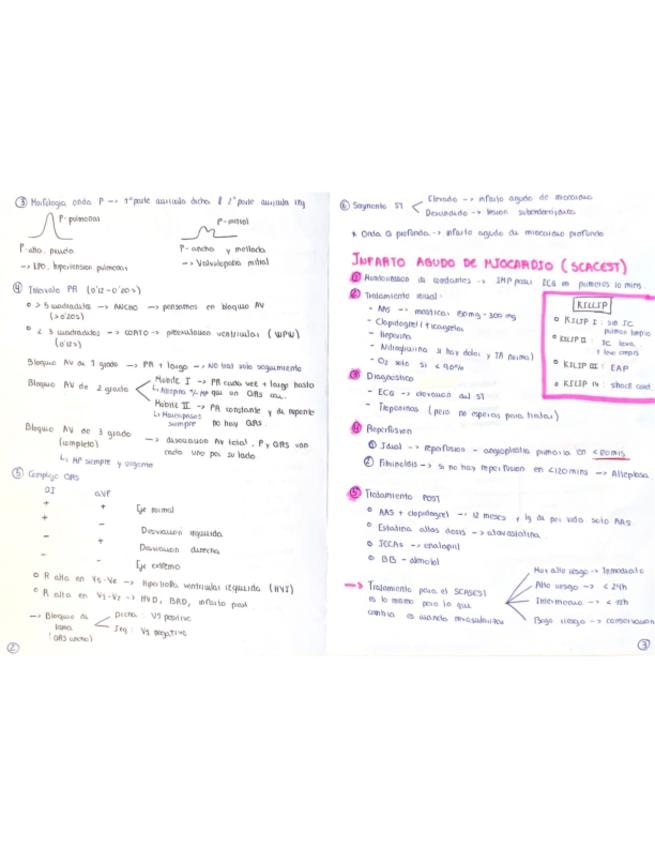 ③ Morfología onda P --> 1ª parte aurícula dcha & 2ª parte aurícula izq
P-pulmonar
P-mitral
P-alto, picuda
P-ancha y mellada
--> EPO, hipertension pulmonar
--> Valvulopatia mitral
④ Intervalo PR (0'12-0'20s)
> 5 cuadraditos --> ANCHO --> pensamos en bloqueo AV
(>0'20s)
< 3 cuadraditos --> CORTO --> preexcitacion ventricular (WPW)
(0'12s)
Bloqueo AV de 1 grado --> PR + largo --> NO trat solo seguimiento
Bloqueo AV de 2 grado
Mobitz I --> PR cada vez + largo hasta
que un QRS
Mobitz II --> PR constante y de repente
↳ Marcapasos siempre
no hay QRS.
Bloqueo AV de 3 grado
(completo)
--> disociacion AV total, P y QRS van
cada uno por su lado
↳ MP siempre y urgente
⑤ Complejo QRS
DI aVF
+ + Eje normal
+ - Desviacion izquierda
- + Desviacion derecha
- - Eje extremo
R alta en V5-V6 --> Hipertrofia ventricular izquierda (HVI)
R alta en V1-V2 --> HVD, BRD, infarto post.
--> Bloqueo de rama
(QRS ancho)
Dcha: V1 positivo
Izq: V1 negativo
②
⑥ Segmento ST
Elevado --> infarto agudo de miocardio
Descendido --> lesion subendocardica
* Onda Q profunda --> infarto agudo de miocardio profundo
INFARTO AGUDO DE MIOCARDIO (SCACEST)
① Monitorizacion de constantes --> IMP ECG en primeros 10 mins
② Tratamiento inicial:
- AAS -> masticar 150mg-300mg
- Clopidogrel / ticagrelor
- Heparina
- Nitroglicerina si hay dolor y TA normal
- O2 solo si < 90%
KILLIP
KILLIP I: sin IC
pulmon limpio
KILLIP II: IC leve
KILLIP III: EAP
KILLIP IV: shock card
③ Diagnostico
- ECG -> elevacion del ST
- Troponinas (pero no esperar para tratar)
④ Reperfusion
① Ideal --> reperfusion - angioplastia primaria en
② Fibrinolisis --> si no hay reperfusion en <120mins --> Alteplasa
⑤ Tratamiento POST
AAS + clopidogrel -- 12 meses y lg de por vida solo AAS
Estatina altas dosis --> atorvastatina
IECAs --> enalapril
BB - atenolol
--> Tratamiento para el SCASEST
es lo mismo pero lo que
cambia es cuando revascularizar
Muy alto riesgo -> Inmediato
Alto riesgo -> < 24h
Intermedio -> < 72h
Bajo riesgo -> conservador
③